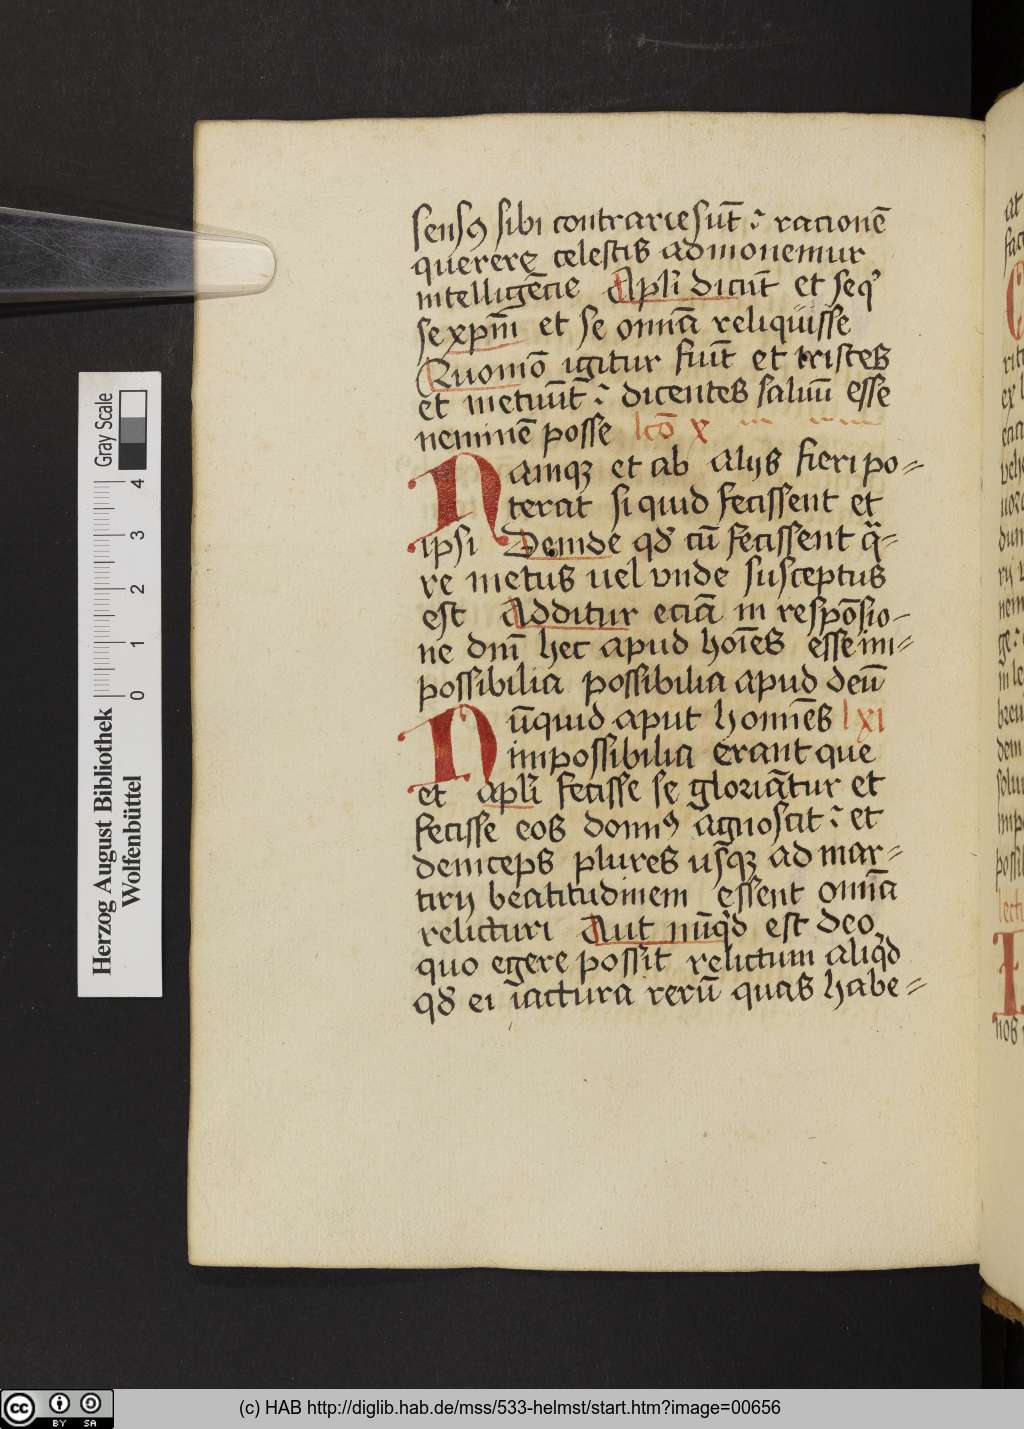 sensꝰ sibi contrarie sūt ː racionē
querere celestis admonemur
intelligēcie Apłi dicūt et seqͥ
se xpm̄ et se omīa reliquisse
Quomō igitur fiūt et tristes
et metuūt ː dicentes saluū esse
neminē posse lcō x
Namqꝫ et ab alijs fieri po⸗
terat si quid fecissent et
ipsi Deinde qđ cū fecissent qͣ⸗
re metus uel vnde susceptus
est Additur eciā in respōsio⸗
ne dn̄i hec apud hoīes esse im⸗
possibilia possibilia apud deū
Nūquid aput homīes l xi
impossibilia erant que
et apłi fecisse se gloriātur et
fecisse eos domīꝰ agnoscit ː et
deinceps plures usqꝫ ad mar⸗
tirij beatitudinem essent omīa
relicturi Aut nūqͥd est deo
quo egere possit relictum aliqͥd
qđ ei īactura rerū quas habe⸗
at
fac
Herzog August Bibliothek
Wolfenbüttel
Gray Scale
0 1 2 3 4
(c) HAB http://diglib.hab.de/mss/533-helmst/start.htm?image=00656
cc BY SA